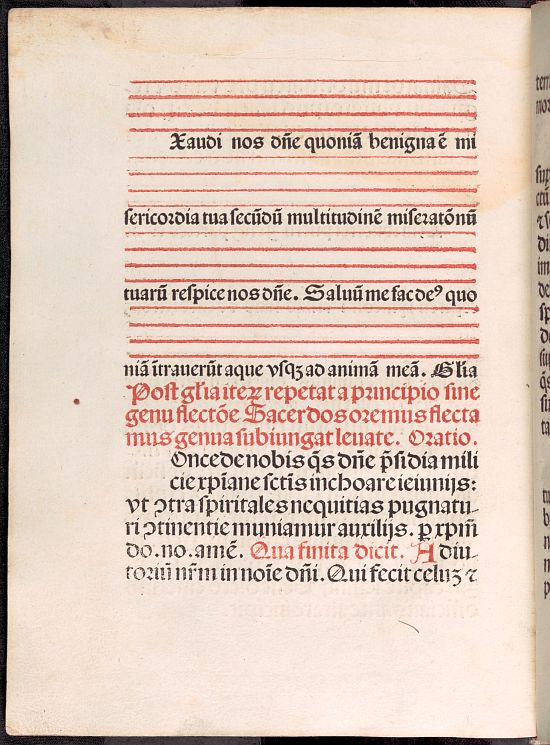 Xaudi nos dñe quoniã benigna ẽ mi
sericordia tua secũdũ multitudinẽ miseratõnũ
tuarũ respice nos dñe. Saluũ me fac deꝰ quo
niã ĩtrauerũt aque vsqꝫ ad animã meã. Glia
Post gl̃ia iteꝝ repetat a principio sine
genu flectõe Sacerdos oremus flecta
mus genua subiungat leuate. Oratio.
Oncede nobis q̃s dñe p̃sidia mili
cie xp̃iane sctĩs inchoare ieiunijs:
vt ꝯtra spiritales nequitias pugnatu-
ri ꝯtinentie muniamur auxilijs. ꝑ xp̃m
do. no. amẽ. Qua finita dicit. Adiu-
toriũ nr̃m in noĩe dñi. Qui fecit celuꝫ ⁊